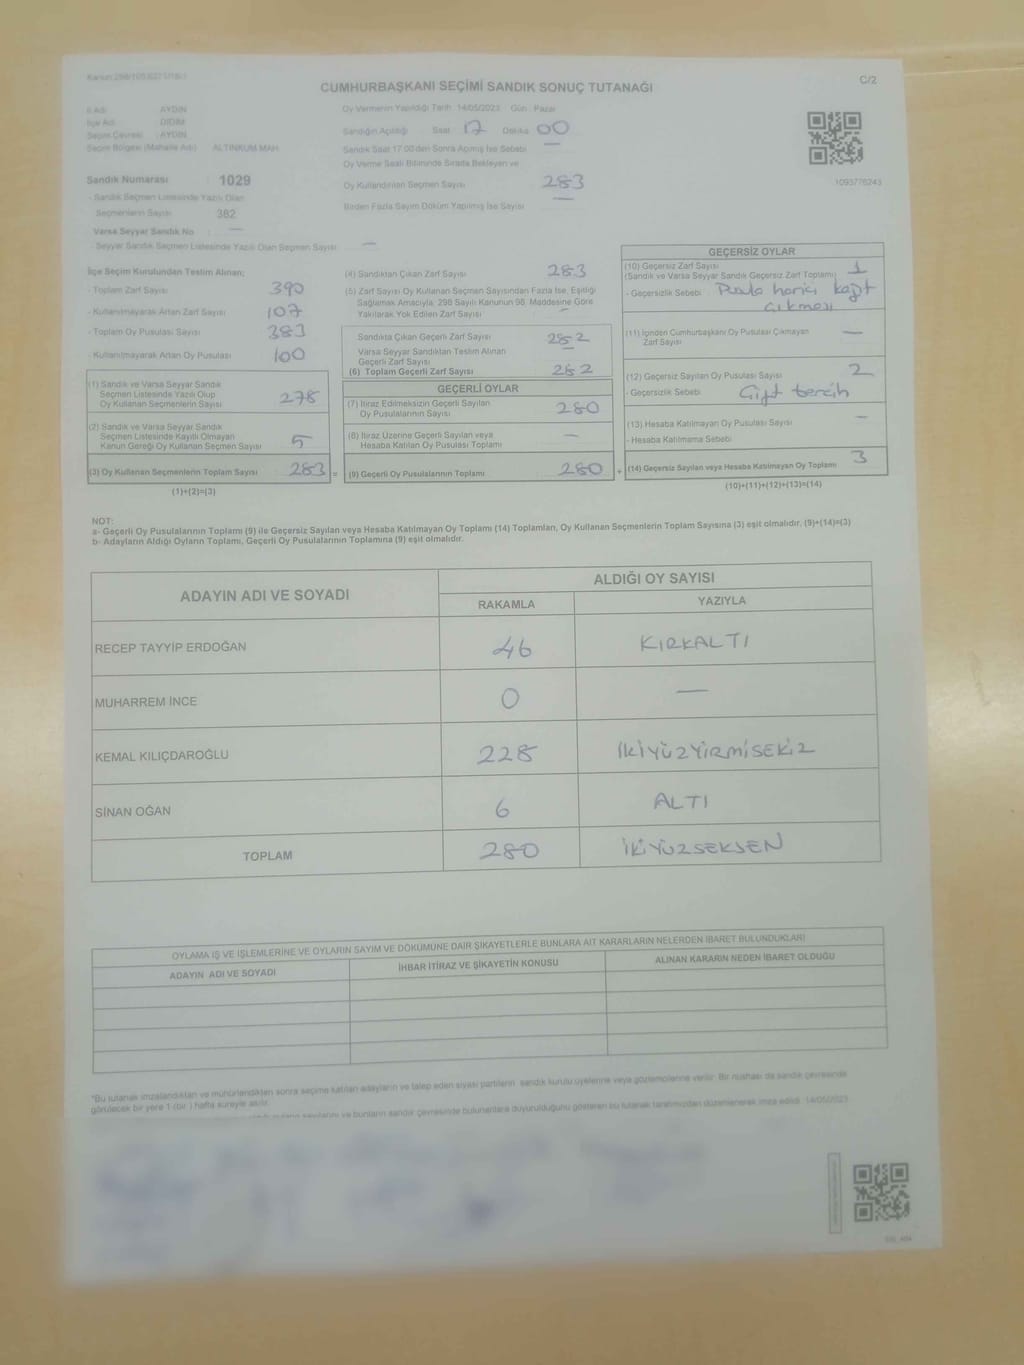 C/2
CUMHURBAŞKANI SEÇİMİ SANDIK SONUÇ TUTANAĞI
İl Adı: AYDIN
İlçe Adı: DİDİM
Seçim Çevresi: AYDIN
Seçim Bölgesi (Mahalle Adı) ALTINKUM MAH.
Sandık Numarası 1029
- Sandık Seçmen Listesinde Yazılı Olan
Seçmenlerin Sayısı 382
Varsa Seyyar Sandık No —
- Seyyar Sandık Seçmen Listesinde Yazılı Olan Seçmen Sayısı —
Oy Vermenin Yapıldığı Tarih 14/05/2023 Gün: Pazar
Sandığın Açıldığı Saat 17 Dakika 00
Sandık Saat 17.00'den Sonra Açılmış İse Sebebi —
Oy Verme Saati Bitiminde Sırada Bekleyen ve
Oy Kullandırılan Seçmen Sayısı 283
Birden Fazla Sayım Döküm Yapılmış İse Sayısı —
1093776243
İlçe Seçim Kurulundan Teslim Alınan;
- Toplam Zarf Sayısı 390
- Kullanılmayarak Artan Zarf Sayısı 107
- Toplam Oy Pusulası Sayısı 383
- Kullanılmayarak Artan Oy Pusulası 100
(1) Sandık ve Varsa Seyyar Sandık
Seçmen Listesinde Yazılı Olup
Oy Kullanan Seçmenlerin Sayısı 278
(2) Sandık ve Varsa Seyyar Sandık
Seçmen Listesinde Kayıtlı Olmayan
Kanun Gereği Oy Kullanan Seçmen Sayısı 5
(3) Oy Kullanan Seçmenlerin Toplam Sayısı 283 =
(1)+(2)=(3)
(4) Sandıktan Çıkan Zarf Sayısı 283
(5) Zarf Sayısı Oy Kullanan Seçmen Sayısından Fazla İse, Eşitliği
Sağlamak Amacıyla, 298 Sayılı Kanunun 98. Maddesine Göre
Yakılarak Yok Edilen Zarf Sayısı —
Sandıkta Çıkan Geçerli Zarf Sayısı 282
Varsa Seyyar Sandıktan Teslim Alınan
Geçerli Zarf Sayısı —
(6) Toplam Geçerli Zarf Sayısı 282
GEÇERLİ OYLAR
(7) İtiraz Edilmeksizin Geçerli Sayılan
Oy Pusulalarının Sayısı 280
(8) İtiraz Üzerine Geçerli Sayılan veya
Hesaba Katılan Oy Pusulası Toplamı —
(9) Geçerli Oy Pusulalarının Toplamı 280 +
GEÇERSİZ OYLAR
(10) Geçersiz Zarf Sayısı
(Sandık ve Varsa Seyyar Sandık Geçersiz Zarf Toplamı) 1
- Geçersizlik Sebebi harici kağıt
çıkması
(11) İçinden Cumhurbaşkanı Oy Pusulası Çıkmayan
Zarf Sayısı —
(12) Geçersiz Sayılan Oy Pusulası Sayısı 2
- Geçersizlik Sebebi Çift tercih
(13) Hesaba Katılmayan Oy Pusulası Sayısı —
- Hesaba Katılmama Sebebi
(14) Geçersiz Sayılan veya Hesaba Katılmayan Oy Toplamı 3
(10)+(11)+(12)+(13)=(14)
NOT:
a- Geçerli Oy Pusulalarının Toplamı (9) ile Geçersiz Sayılan veya Hesaba Katılmayan Oy Toplamı (14) Toplamları, Oy Kullanan Seçmenlerin Toplam Sayısına (3) eşit olmalıdır. (9)+(14)=(3)
b- Adayların Aldığı Oyların Toplamı, Geçerli Oy Pusulalarının Toplamına (9) eşit olmalıdır.
ADAYIN ADI VE SOYADI
ALDIĞI OY SAYISI
RAKAMLA YAZIYLA
RECEP TAYYİP ERDOĞAN 46 KIRKALTI
MUHARREM İNCE 0 —
KEMAL KILIÇDAROĞLU 228 İKİYÜZYİRMİSEKİZ
SİNAN OĞAN 6 ALTI
TOPLAM 280 İKİYÜZSEKSEN
OYLAMA İŞ VE İŞLEMLERİNE VE OYLARIN SAYIM VE DÖKÜMÜNE DAİR ŞİKAYETLERLE BUNLARA AİT KARARLARIN NELERDEN İBARET BULUNDUKLARI
ADAYIN ADI VE SOYADI İHBAR İTİRAZ VE ŞİKAYETİN KONUSU ALINAN KARARIN NEDEN İBARET OLDUĞU
"Bu tutanak imzalandıktan ve mühürlendikten sonra seçime katılan adayların ve talep eden siyasi partilerin sandık kurulu üyelerine veya gözlemcilerine verilir. Bir nüshası da sandık çevresinde
görülecek bir yere 1 (bir) hafta süreyle asılır.
bunların sandık çevresinde bulunanlara duyurulduğunu gösteren bu tutanak tarafımızdan düzenlenerek imza edildi. 14/05/2023